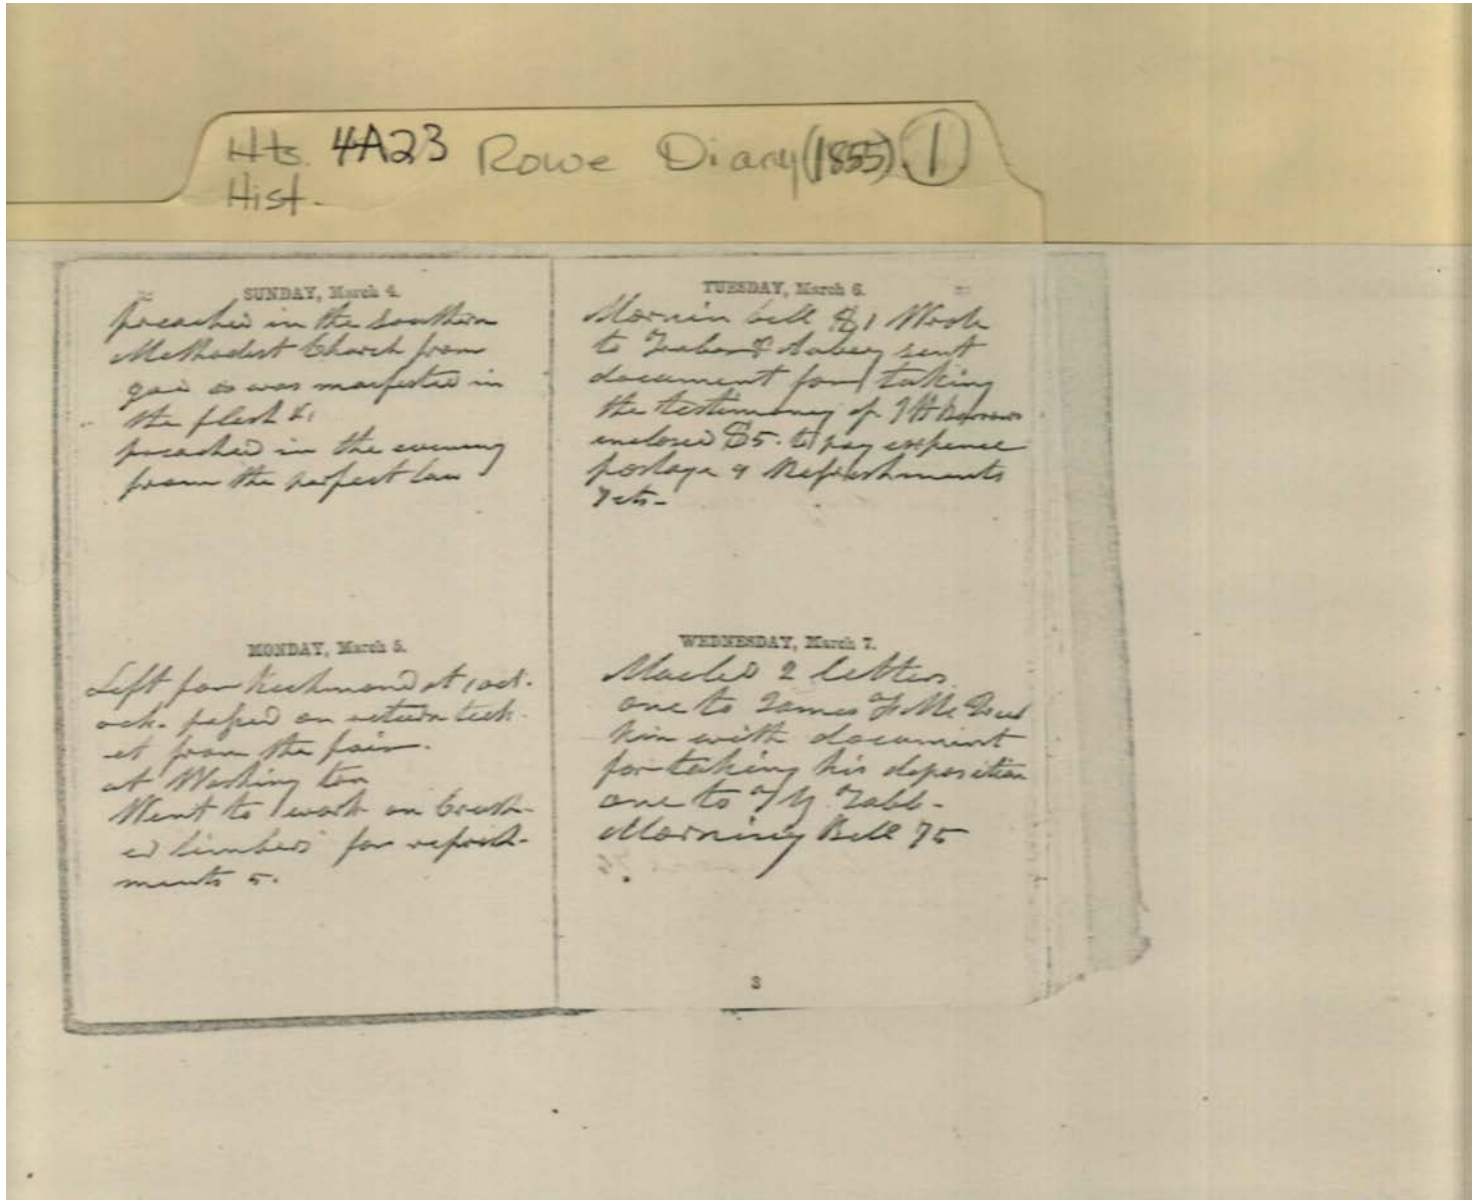 Hts. 4A23 Rowe Diary (1855) 1
Hist.
SUNDAY, March 4.
preached in the Southern
Methodist Church from
was manifested in
the flesh &
preached in the evening
from the perfect law
MONDAY, March 5.
Left for Richmond at 1 ocl-
ock. passed on return tick-
et from the fair.
at Washington
Went to work on
for refresh-
ments 5.
TUESDAY, March 6.
Mornin bell $1 Wrote
to sent
document for taking
the testimony of
enclosed $5. to pay expence
postage & Refreshments
7cts-
WEDNESDAY, March 7.
Mailed 2 letters
one to James
with document
for taking his deposition
one to
Morning Bell 75
3